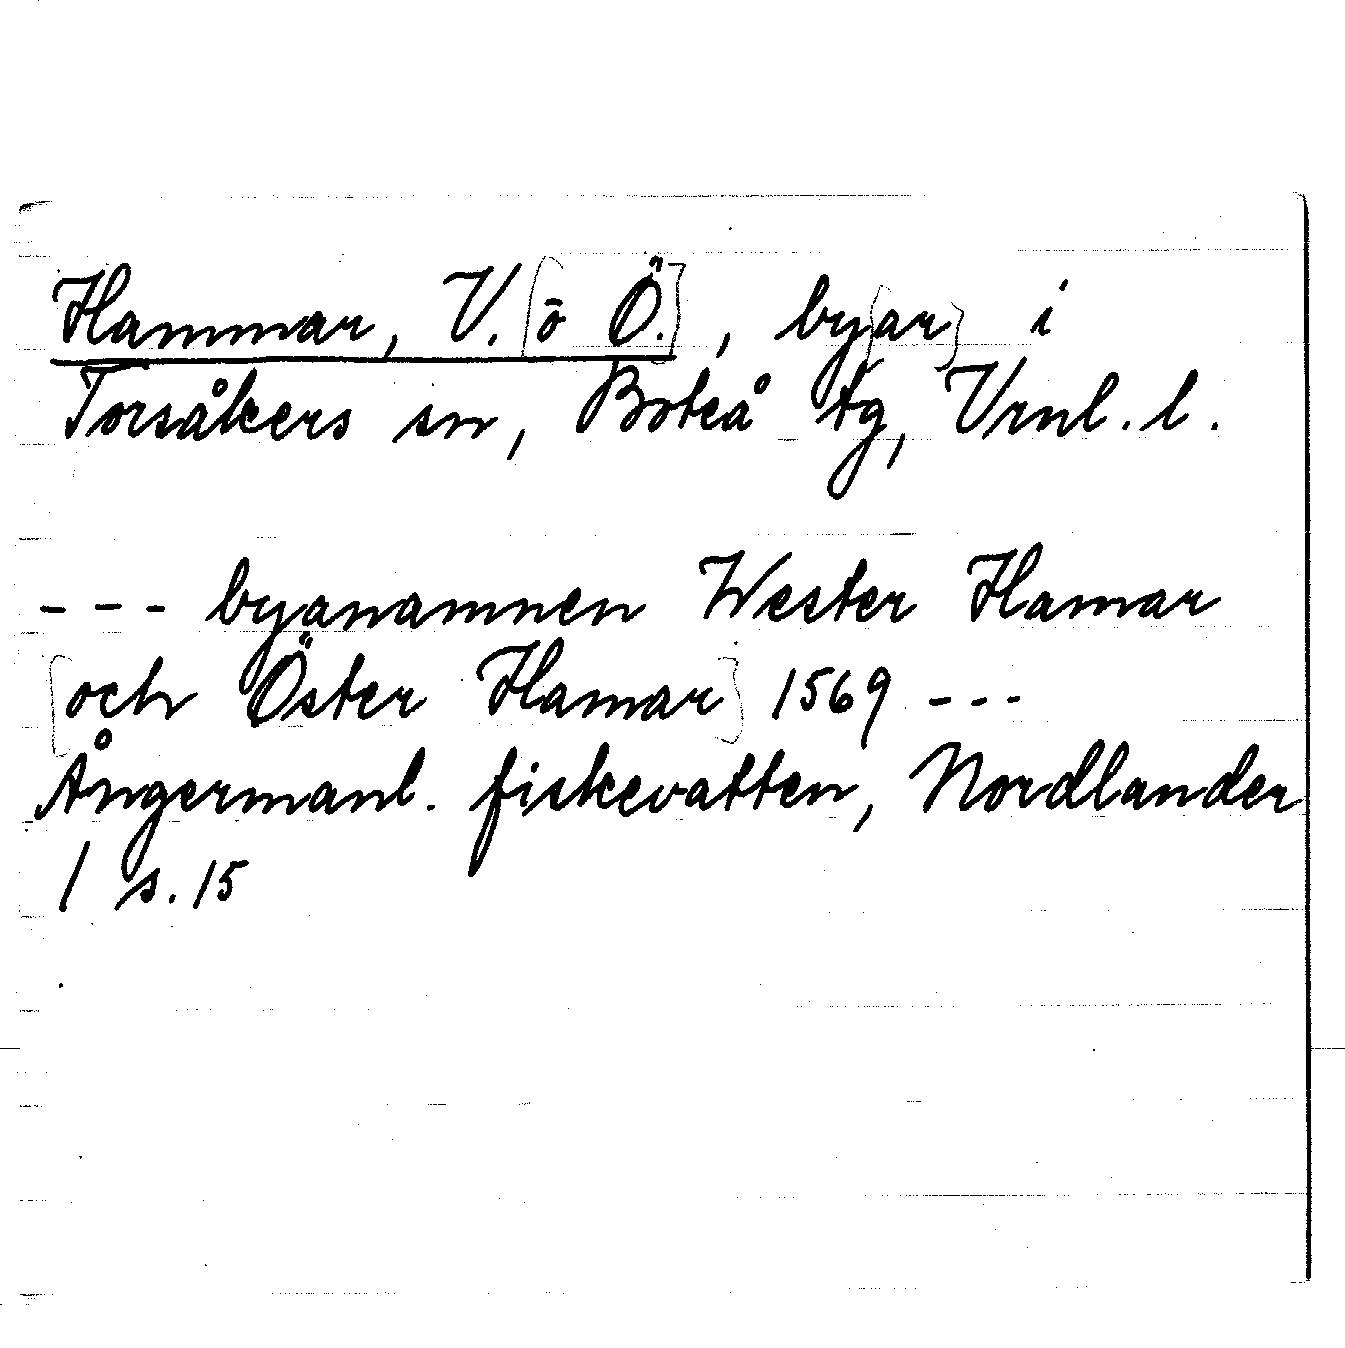 Hammar, V. [o Ö.], by[ar] i
Torsåkers sn, Boteå tg, Vrnl. l.
--- byanamnen Wester Hamar
[och Öster Hamar] 1569 ---
Ångermanl. fiskevatten, Nordlander
/ s. 15